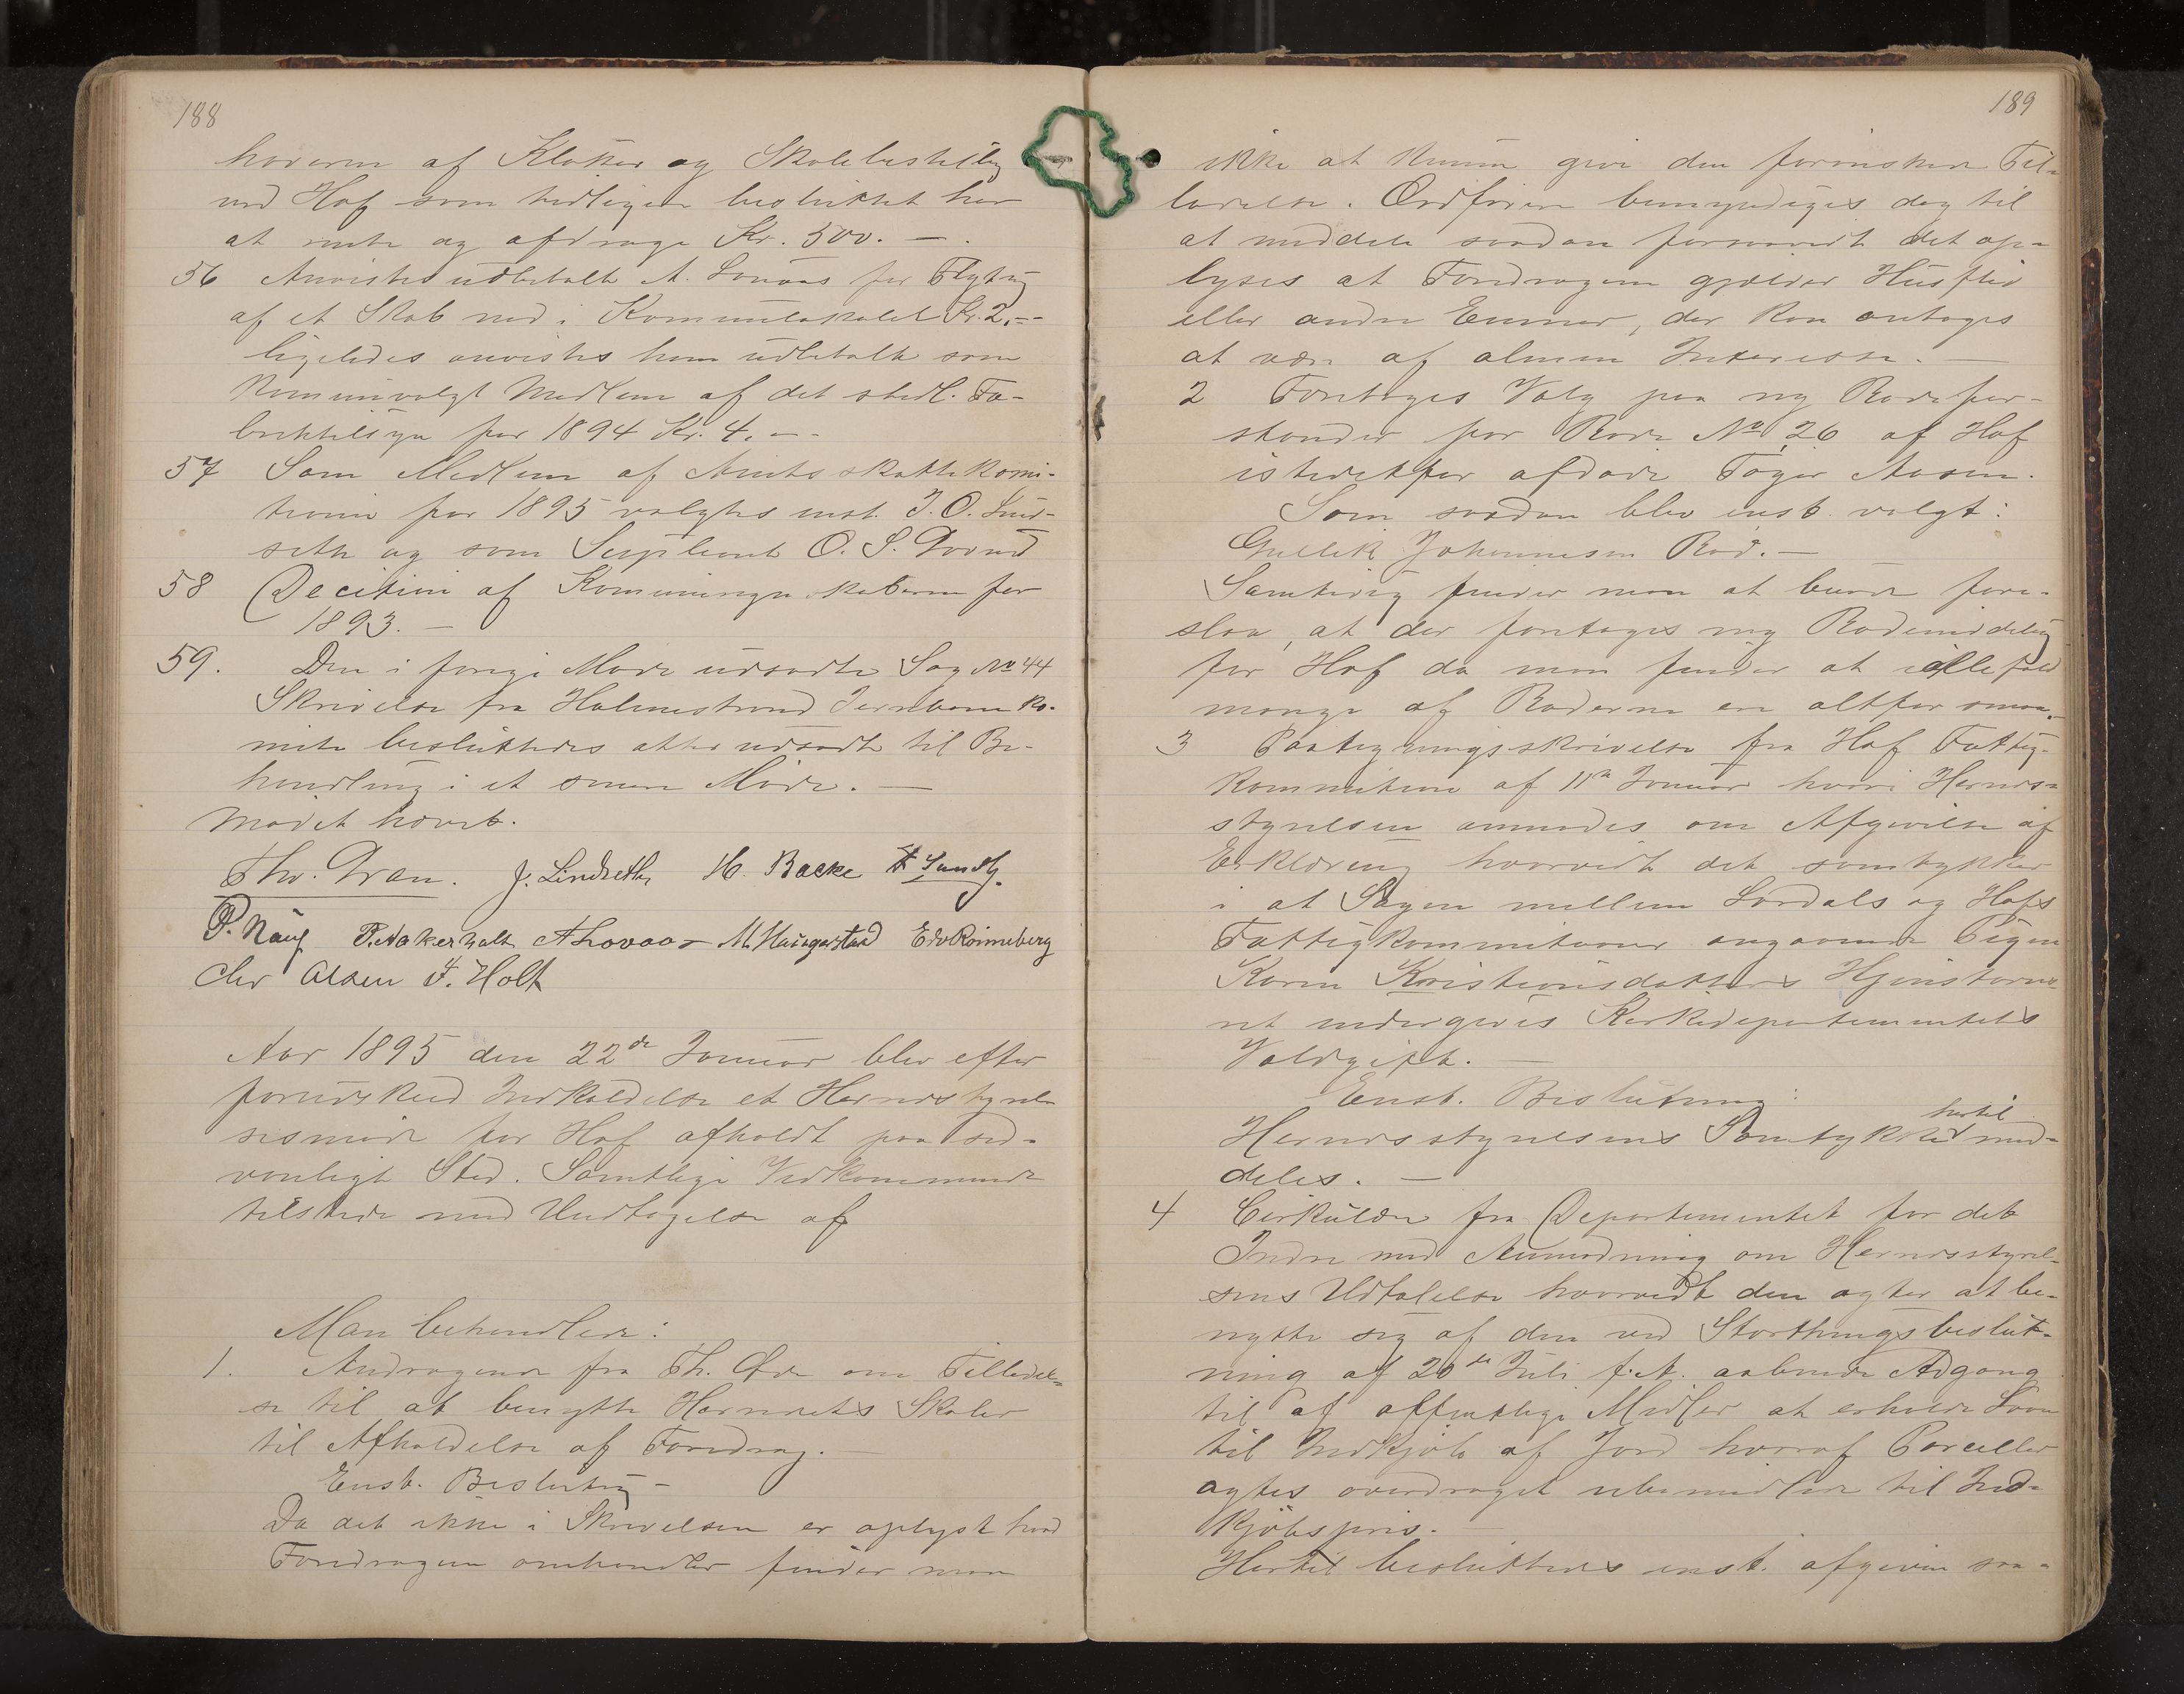 188
haveren af Klokker og Skolebestilling
ved Hof som tidligere besluttet har
at rente og afdrage Kr. 500. —.
56 Anvistes udbetalt A. Lovaas for Flytng
af et Skab ned i Komunelokalet Kr. 2,--
ligeledes anvistes ham udbetalt som
Komunevalgt Medlem af det stedl. Fa-
briktilsyn for 1894 Kr. 4. —
57 Som Medlem af Amtsskattekomi-
tionen for 1895 valgtes enst. J. O. Lind-
seth og som Supleant O. S.
58 Decition af Komuneregnskaberne for
1893. —
59. Den i forrige Møde udsatte Sag No 44
Skrivelse fra Holmestrand Jernbane Ko-
mite besluttedes atter udsadt til Be-
handling i et senere Møde. —
Mødet hævet.
Thv. Gran. J. Lindseth H. Backe
P. Nauf P. Aakerholt A Lovaas M. Haugestad Edv Rønneberg
Chr Olsen F. Holt
Aar 1895 den 22de Januar blev efter
forudskud Indkaldelse et Herredstyrel-
sesmøde for Hof afholdt paa sed-
vanligt Sted. Samtlige Vedkommende
tilstede med Undtagelse af
Man behandlede:
1. Andragende fra Th. om Tilladel-
se til at benytte Herredets Skoler
til Afholdelse af Foredrag. —
Enst. Beslutng —
Da det ikke i Skrivelsen er oplyst hvad
Foredragene omhandler finder man
189
ikke at kunne give den forønskede Til-
ladelse. Ordføreren bemyndiges dog til
at meddele saadan forsaavidt det op-
lyses at Foredragene gjælder Husflid
eller andre Emner, der kan antages
at være af almen Interesse. —
2 Foretages Valg paa ny Rodefor-
stander for Rode No 26 af Hof
istedetfor afdøde Tøger Aasen.
Som saadan blev enst. valgt:
Gullik Johannesen Rød. —
Samtidig finder man at burde fore-
slaa, at der foretages ny Rodeinddeling
for Hof da man finder at ialfald
mange af Roderne ere altfor smaa.
3 Paategningsskrivelse fra Hof Fattig-
kommition af 11te Januar hvori Herreds-
styrelsen anmodes om Afgivelse af
Erklæring hvorvidt det samtykker
i at Sagen mellem Lardals og Hofs
Fattigkommitioner angaaende Pigen
Karen Kristiansdatters Hjemstavns-
ret undergives Kirkedepartementets
Voldgift. —
Enst. Beslutning:
Herredsstyrelsens Samtykke hertil med-
deles. —
4 Cirkulære fra Departementet for det
Indre med Anmodning om Herredsstyrel-
sens Udtalelse hvorvidt den agter at be-
nytte sig af den ved Storthingsbeslut-
ning af 20de Juli f. A. aabnede Adgang
til af offentlige Midler at erholde Laan
til Indkjøb af Jord hvoraf Parceller
agtes overdraget ubemidlede til Ind-
kjøbspris. —
Hertil besluttedes enst. afgiven saa-